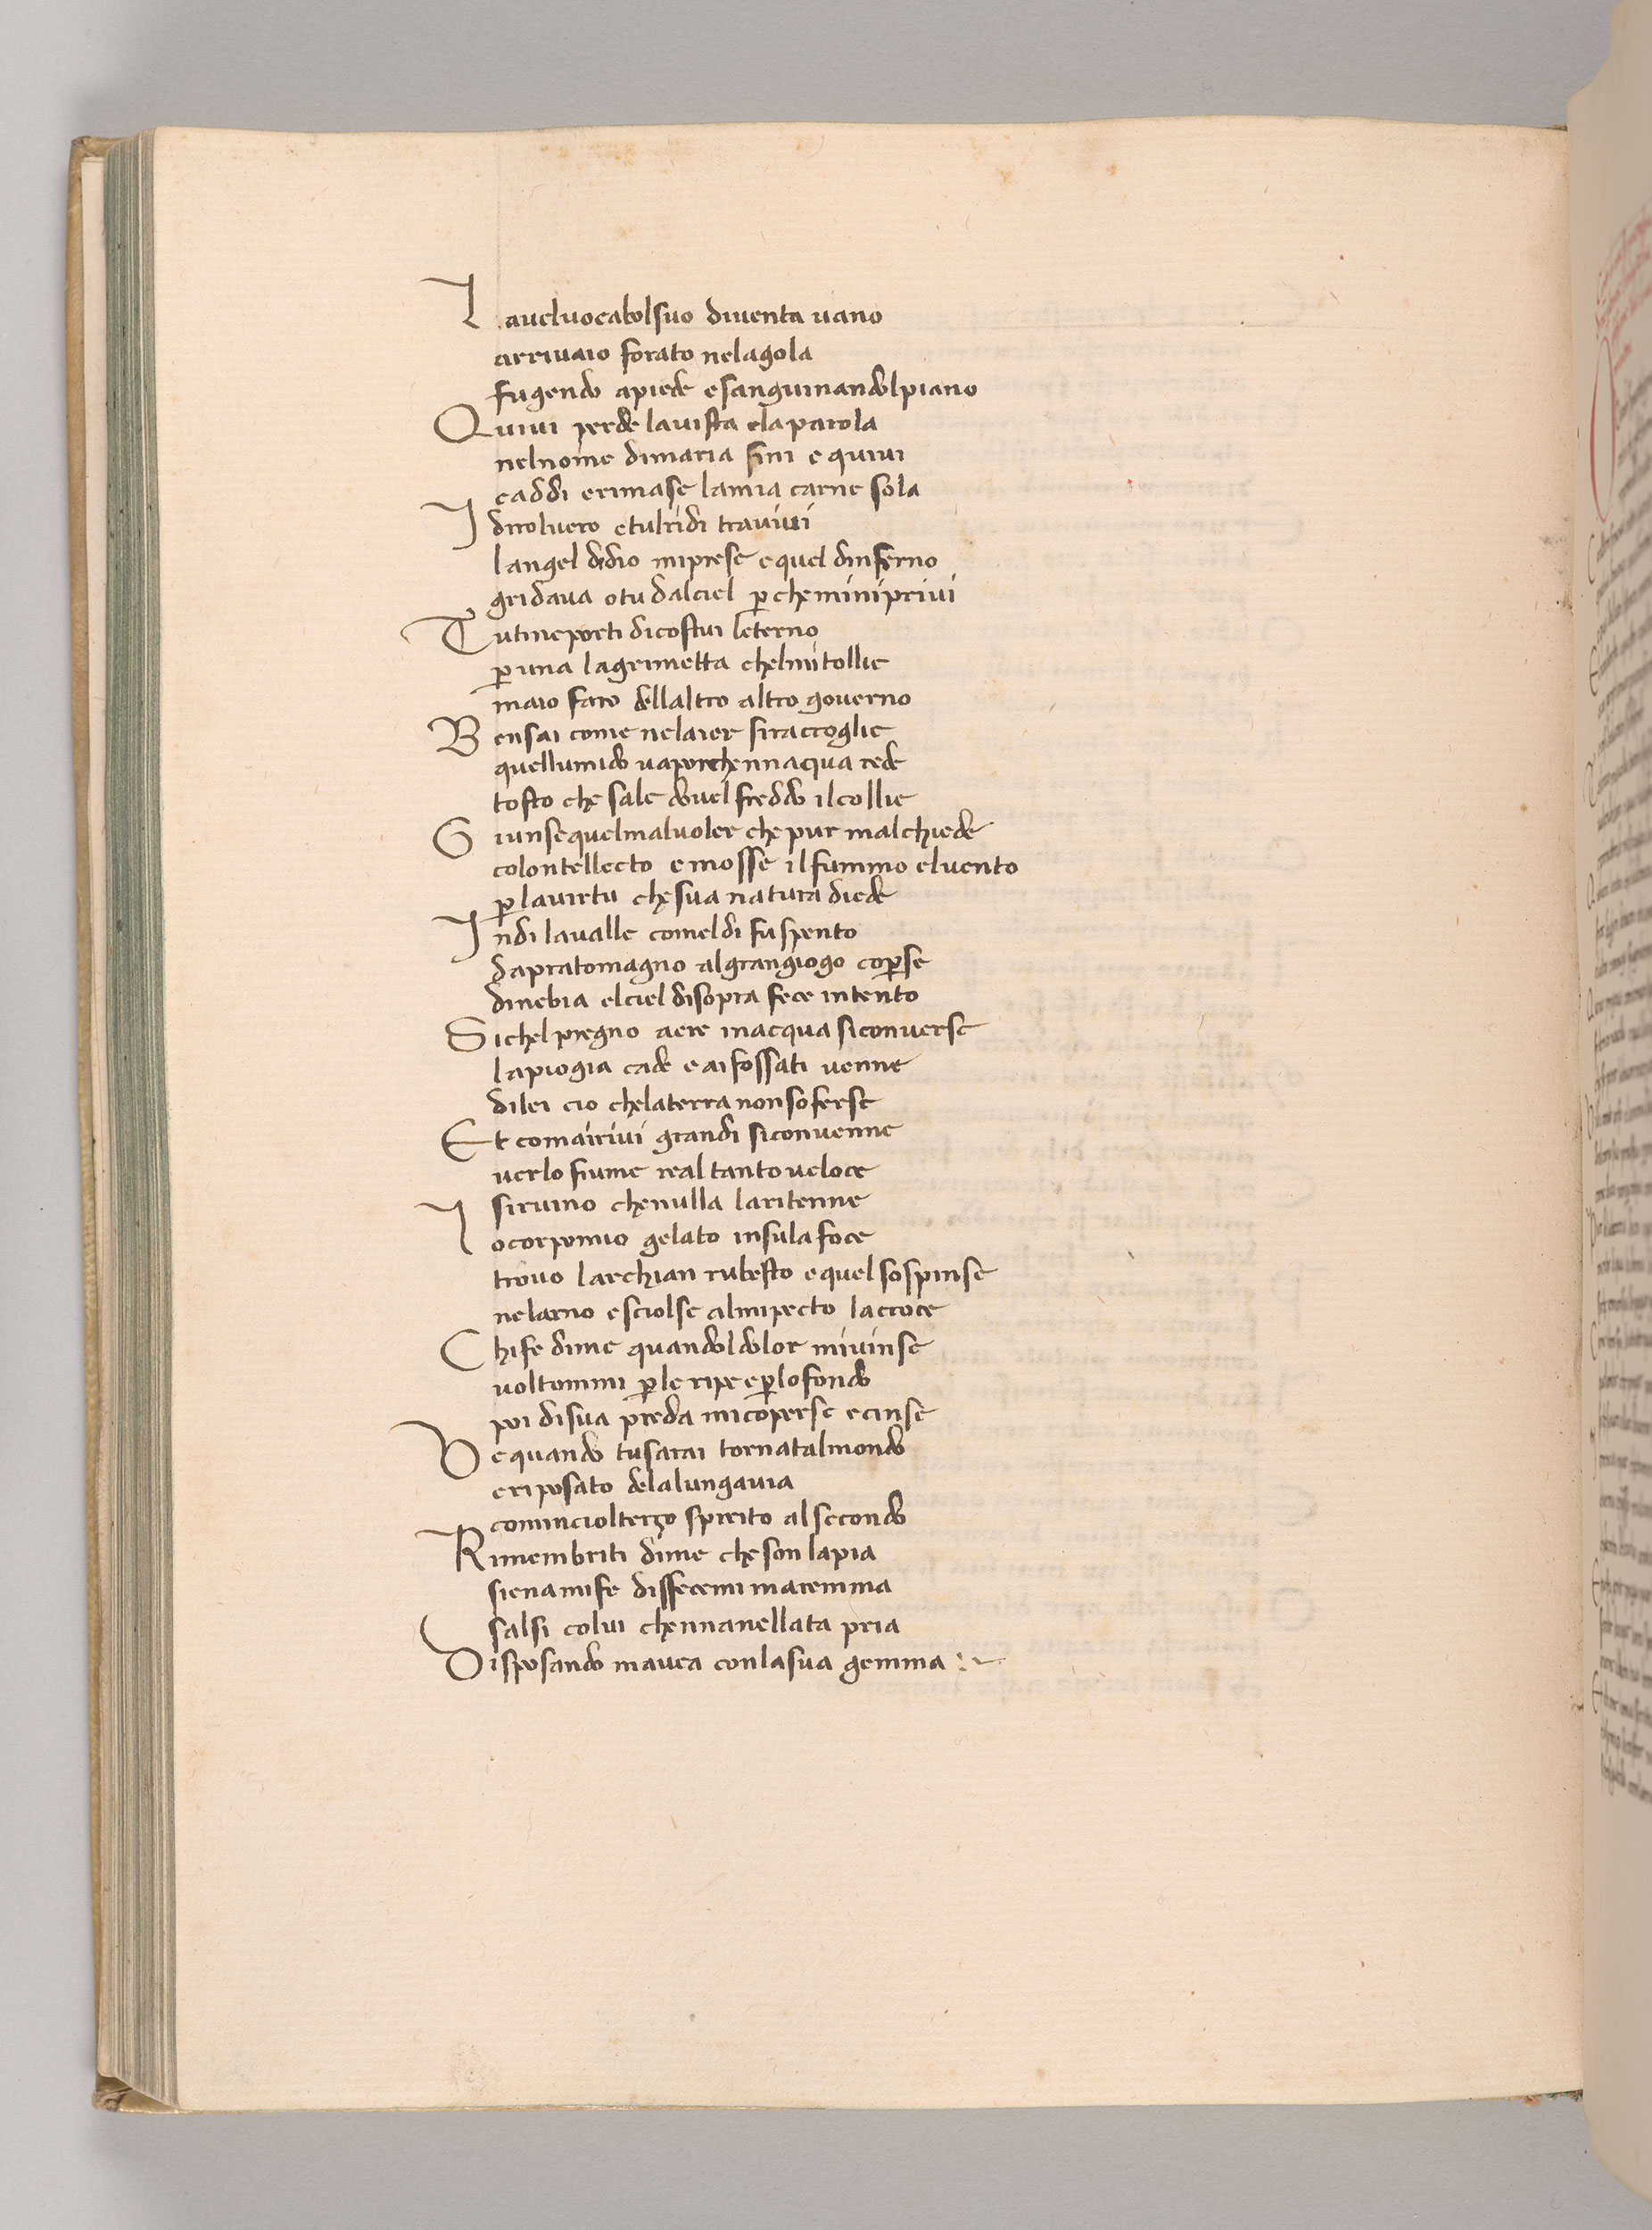 Lauelvocabolsuo diventa vano
arrivaio forato nelagola
fugendo apiede esanguinandolpiano
Quivi perde lavista elaparola
nelnome dimaria fini e quivi
caddi erimase lamia carne sola
I dirolvero etulridi travivi
langel didio miprese equel dinferno
gridava otu dalciel ꝑche miniprivi
Tutineporti dicostui leterno
ꝑ una lagrimetta chelmitollie
maio faro dellaltro altro governo
Bensai come nelaier siraccoglie
quellumido vaporchennacqua rede
tosto che sale dovel freddo ilcollie
Giunsequelmalvoler che pur malchiede
colontellecto emosse ilfummo elvento
ꝑ lavirtu che sua natura diede
Indi lavalle comeldi fuspento
dapratomagno algrangiogo coꝑse
dinebia elciel disopra fece intento
Sichel pregno aere inacqua siconverse
lapiogia cade eaifossati venne
dilei cio chelaterra nonsoferse
Et comairivi grandi siconvenne
verlo fiume real tanto veloce
siruino chenulla laritenne
Iocorpomio gelato insulafoce
trovo larchian rubesto equel sospinse
nelarno esciolse almipecto lacroce
Chife dime quandoldolor mivinse
voltommi ꝑ le ripe eꝑlofondo
poi disua preda micoperse ecinse
De quando tusarai tornatalmondo
eriposato delalungavia
comincioltergo spirito alsecondo
Rimembriti dime cheson lapia
sienamife disfecemi maremma
salsi colui chennanellata pria
Disposando mavea conlasua gemma :~